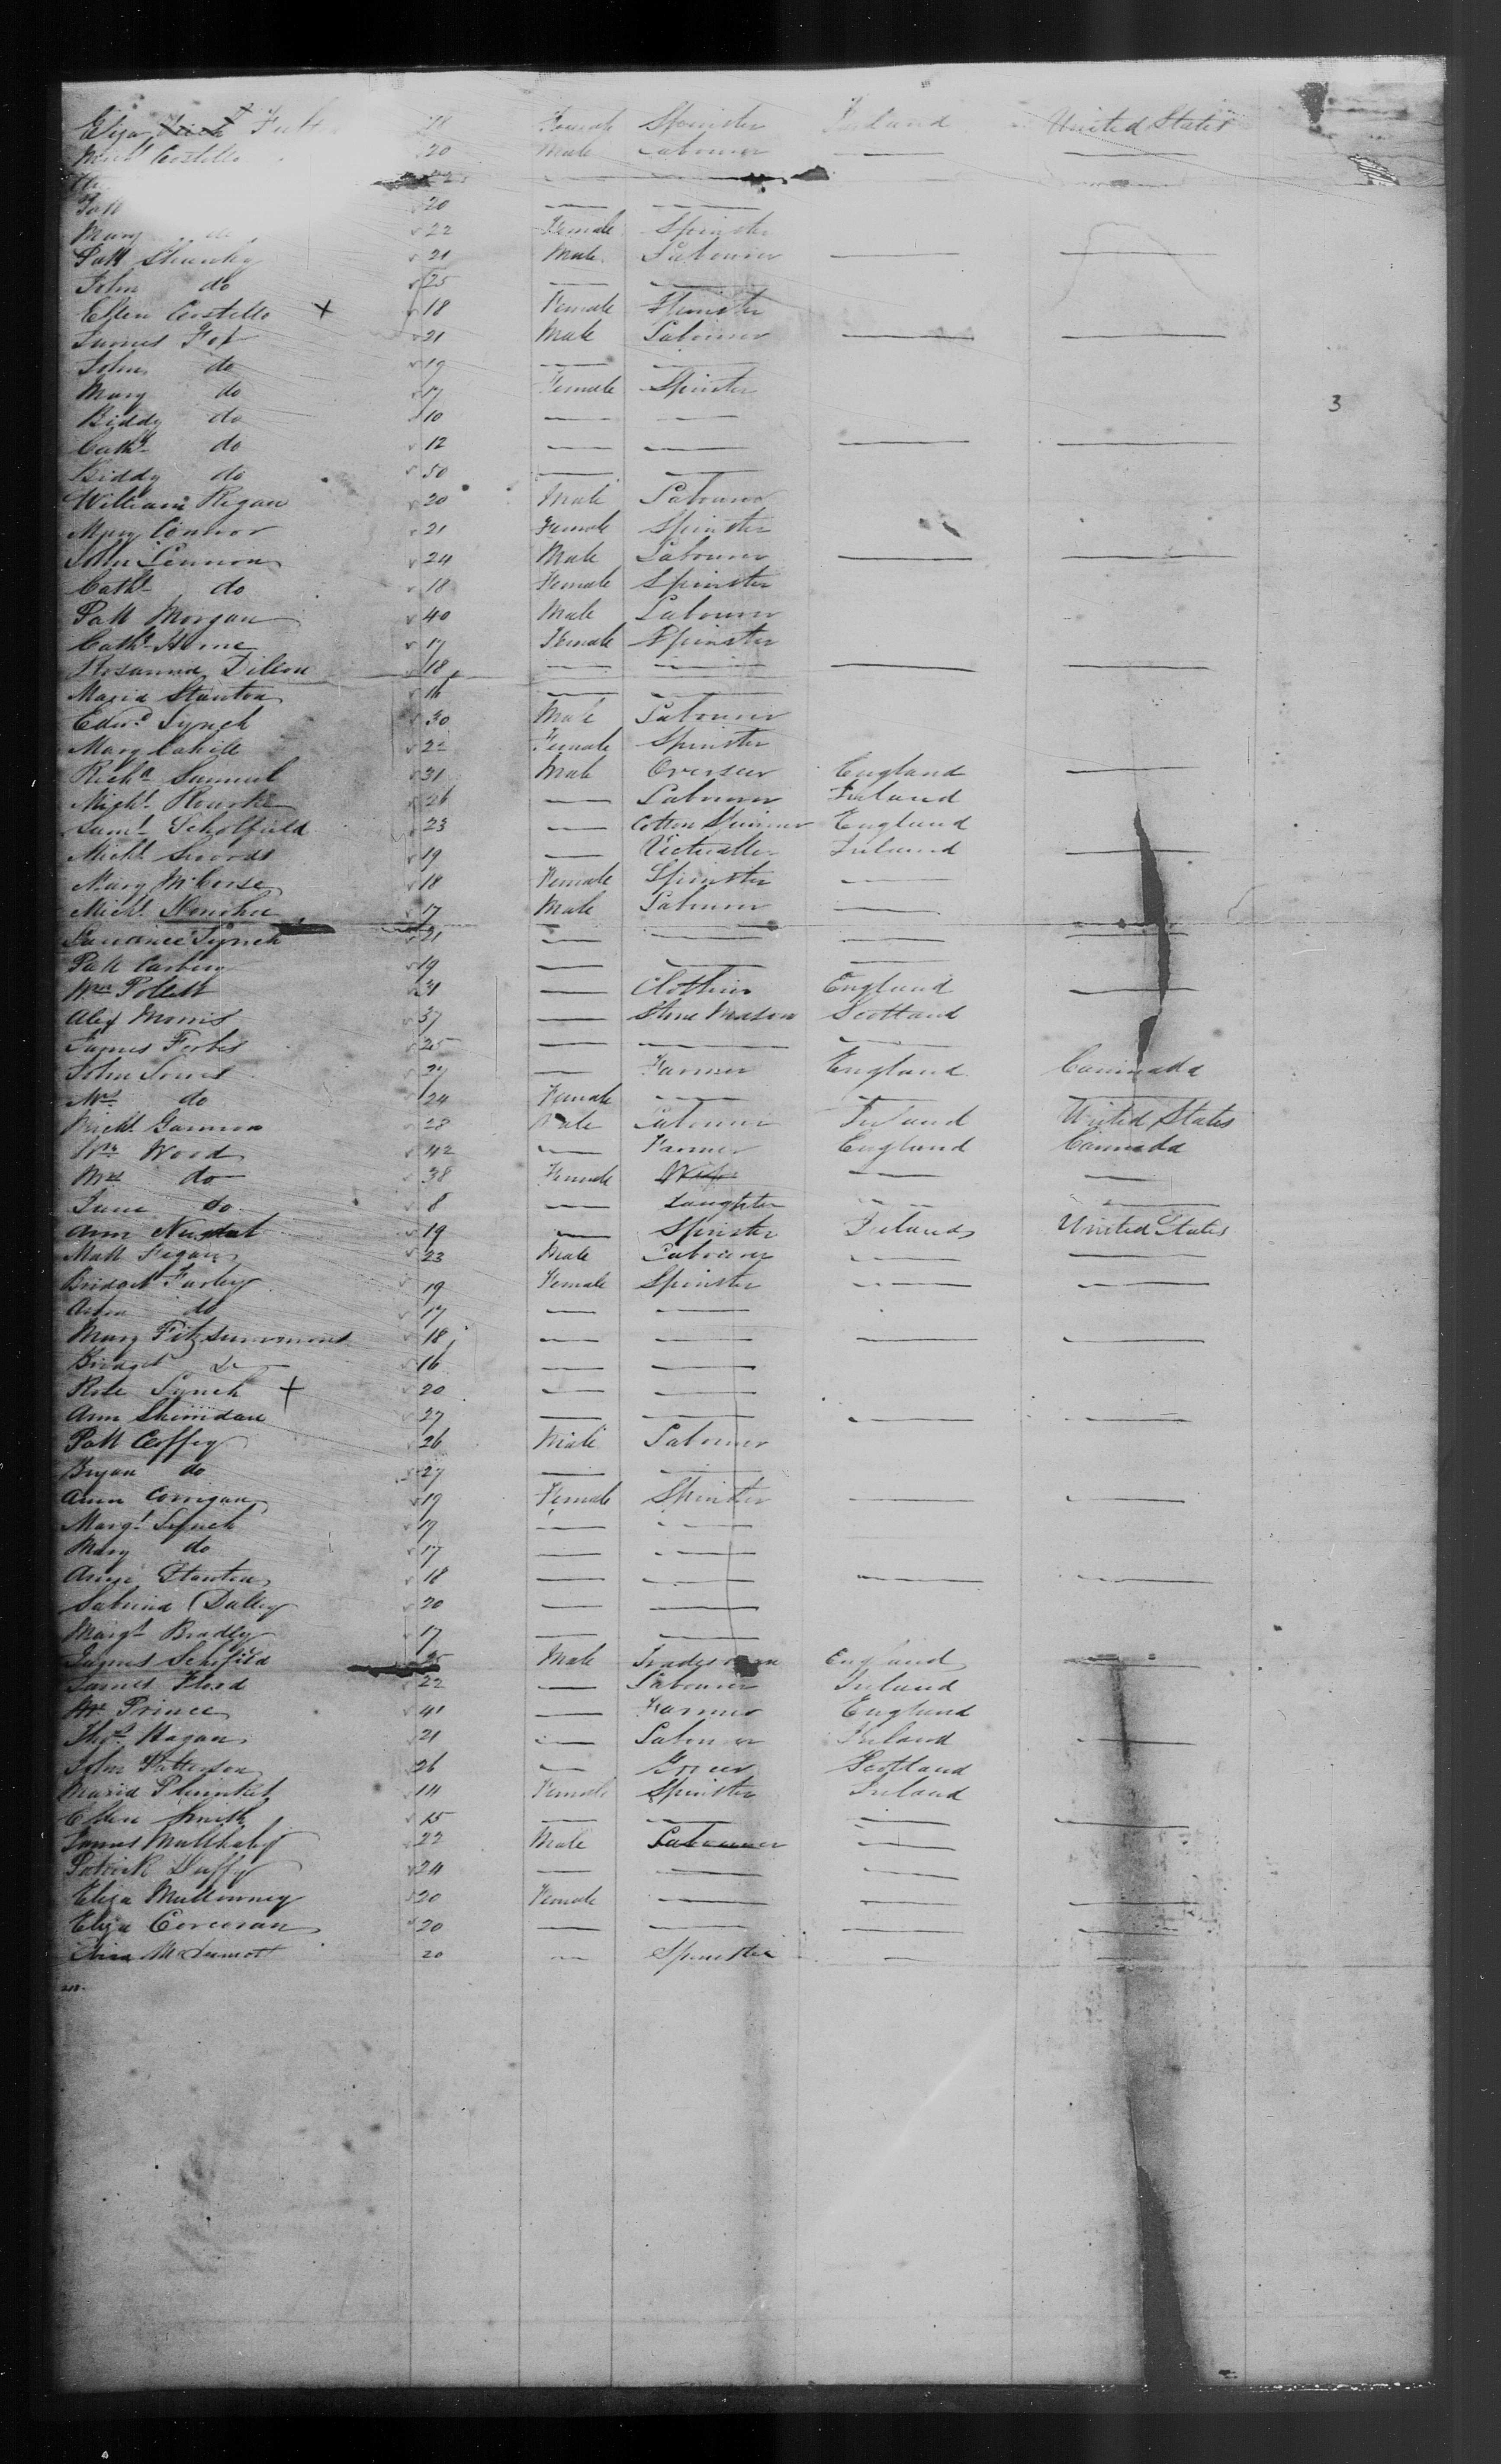 Eliza 18 Female Spinster Ireland United States
Mich.l Costello 20 Male Labourer — —
— —
Patt 20 — —
Mary do 22 Female Spinster
Patt Shanley 21 Male Labourer — —
John do 25 — —
Ellen Costello + 18 Female Spinster
James Fox 21 Male Labourer — —
John do 19 — —
Mary do 17 Female Spinster
Biddy do 10 — — 3
Cath.e do 12 — — — —
Biddy do 50 — —
William Regan 20 Male Labourer
Mary Connor 21 Female Spinster
John Lennon 24 Male Labourer — —
Cath.e do 18 Female Spinster
Patt Morgan 40 Male Labourer
Cath.e Horne 17 Female Spinster
Rosanna Dillon 18 — — — —
Maria Stanton 16 — —
Edw.d Lynch 30 Male Labourer
Mary Cahill 22 Female Spinster
Rich.d Samuel 31 Male Overseer England —
Mich.l Rourke 26 — Labourer Ireland
Sam.l Scholfield 23 — Cotton Spinner England
Mich.l Swords 19 — Victualler Ireland —
Mary 18 Female Spinster —
Mich.l Donohoe 17 Male Labourer — —
Lawrence Lynch 21 — — — —
Patt Carberry 19 — — —
W.m Pollett 31 — Clothier England —
Alex Morris 37 — Stone Mason Scotland
James Forbes 25 — — —
John Jones 27 — Farmer England Cannada
Mrs do 24 Female — — —
Mich.l Gannon 28 Male Labourer Ireland United States
W.m Wood 42 — Farmer England Cannada
Mrs do 38 Female Wife — —
Jane do 8 — Daughter — —
Ann 19 — Spinster Ireland United States
Matt Fegan 23 Male Labourer — —
Bridget Farley 19 Female Spinster — —
Ann do 17 — —
Mary Fitzsummons 18 — — — —
Bridget do 16 — —
Rose Lynch + 20 — —
Ann Sheridan 27 — — — —
Patt Coffey 26 Male Labourer
Bryan do 27 — —
Ann Corrigan 19 Female Spinster — —
Marg.t Lynch 17 — —
Mary do 17 — —
Anne Stanton 18 — — — —
Sabrina Dalley 20 — —
Marg.t Bradley 17 — —
James Schofield Male Tradesman England —
James Flood 22 — Labourer Ireland
Mr Prince 41 — Farmer England
Tho.s Hagan 21 — Labourer Ireland —
John Patterson 26 — Grocer Scotland
Maria Plunnket 14 Female Spinster Ireland
Ellen Smith 15 — — — —
James 22 Male Labourer —
Patrick Duffy 24 — — —
Eliza Mullowney 20 Female — — —
Eliza Corcoran 20 — — — —
McDermott 20 — Spinster — —